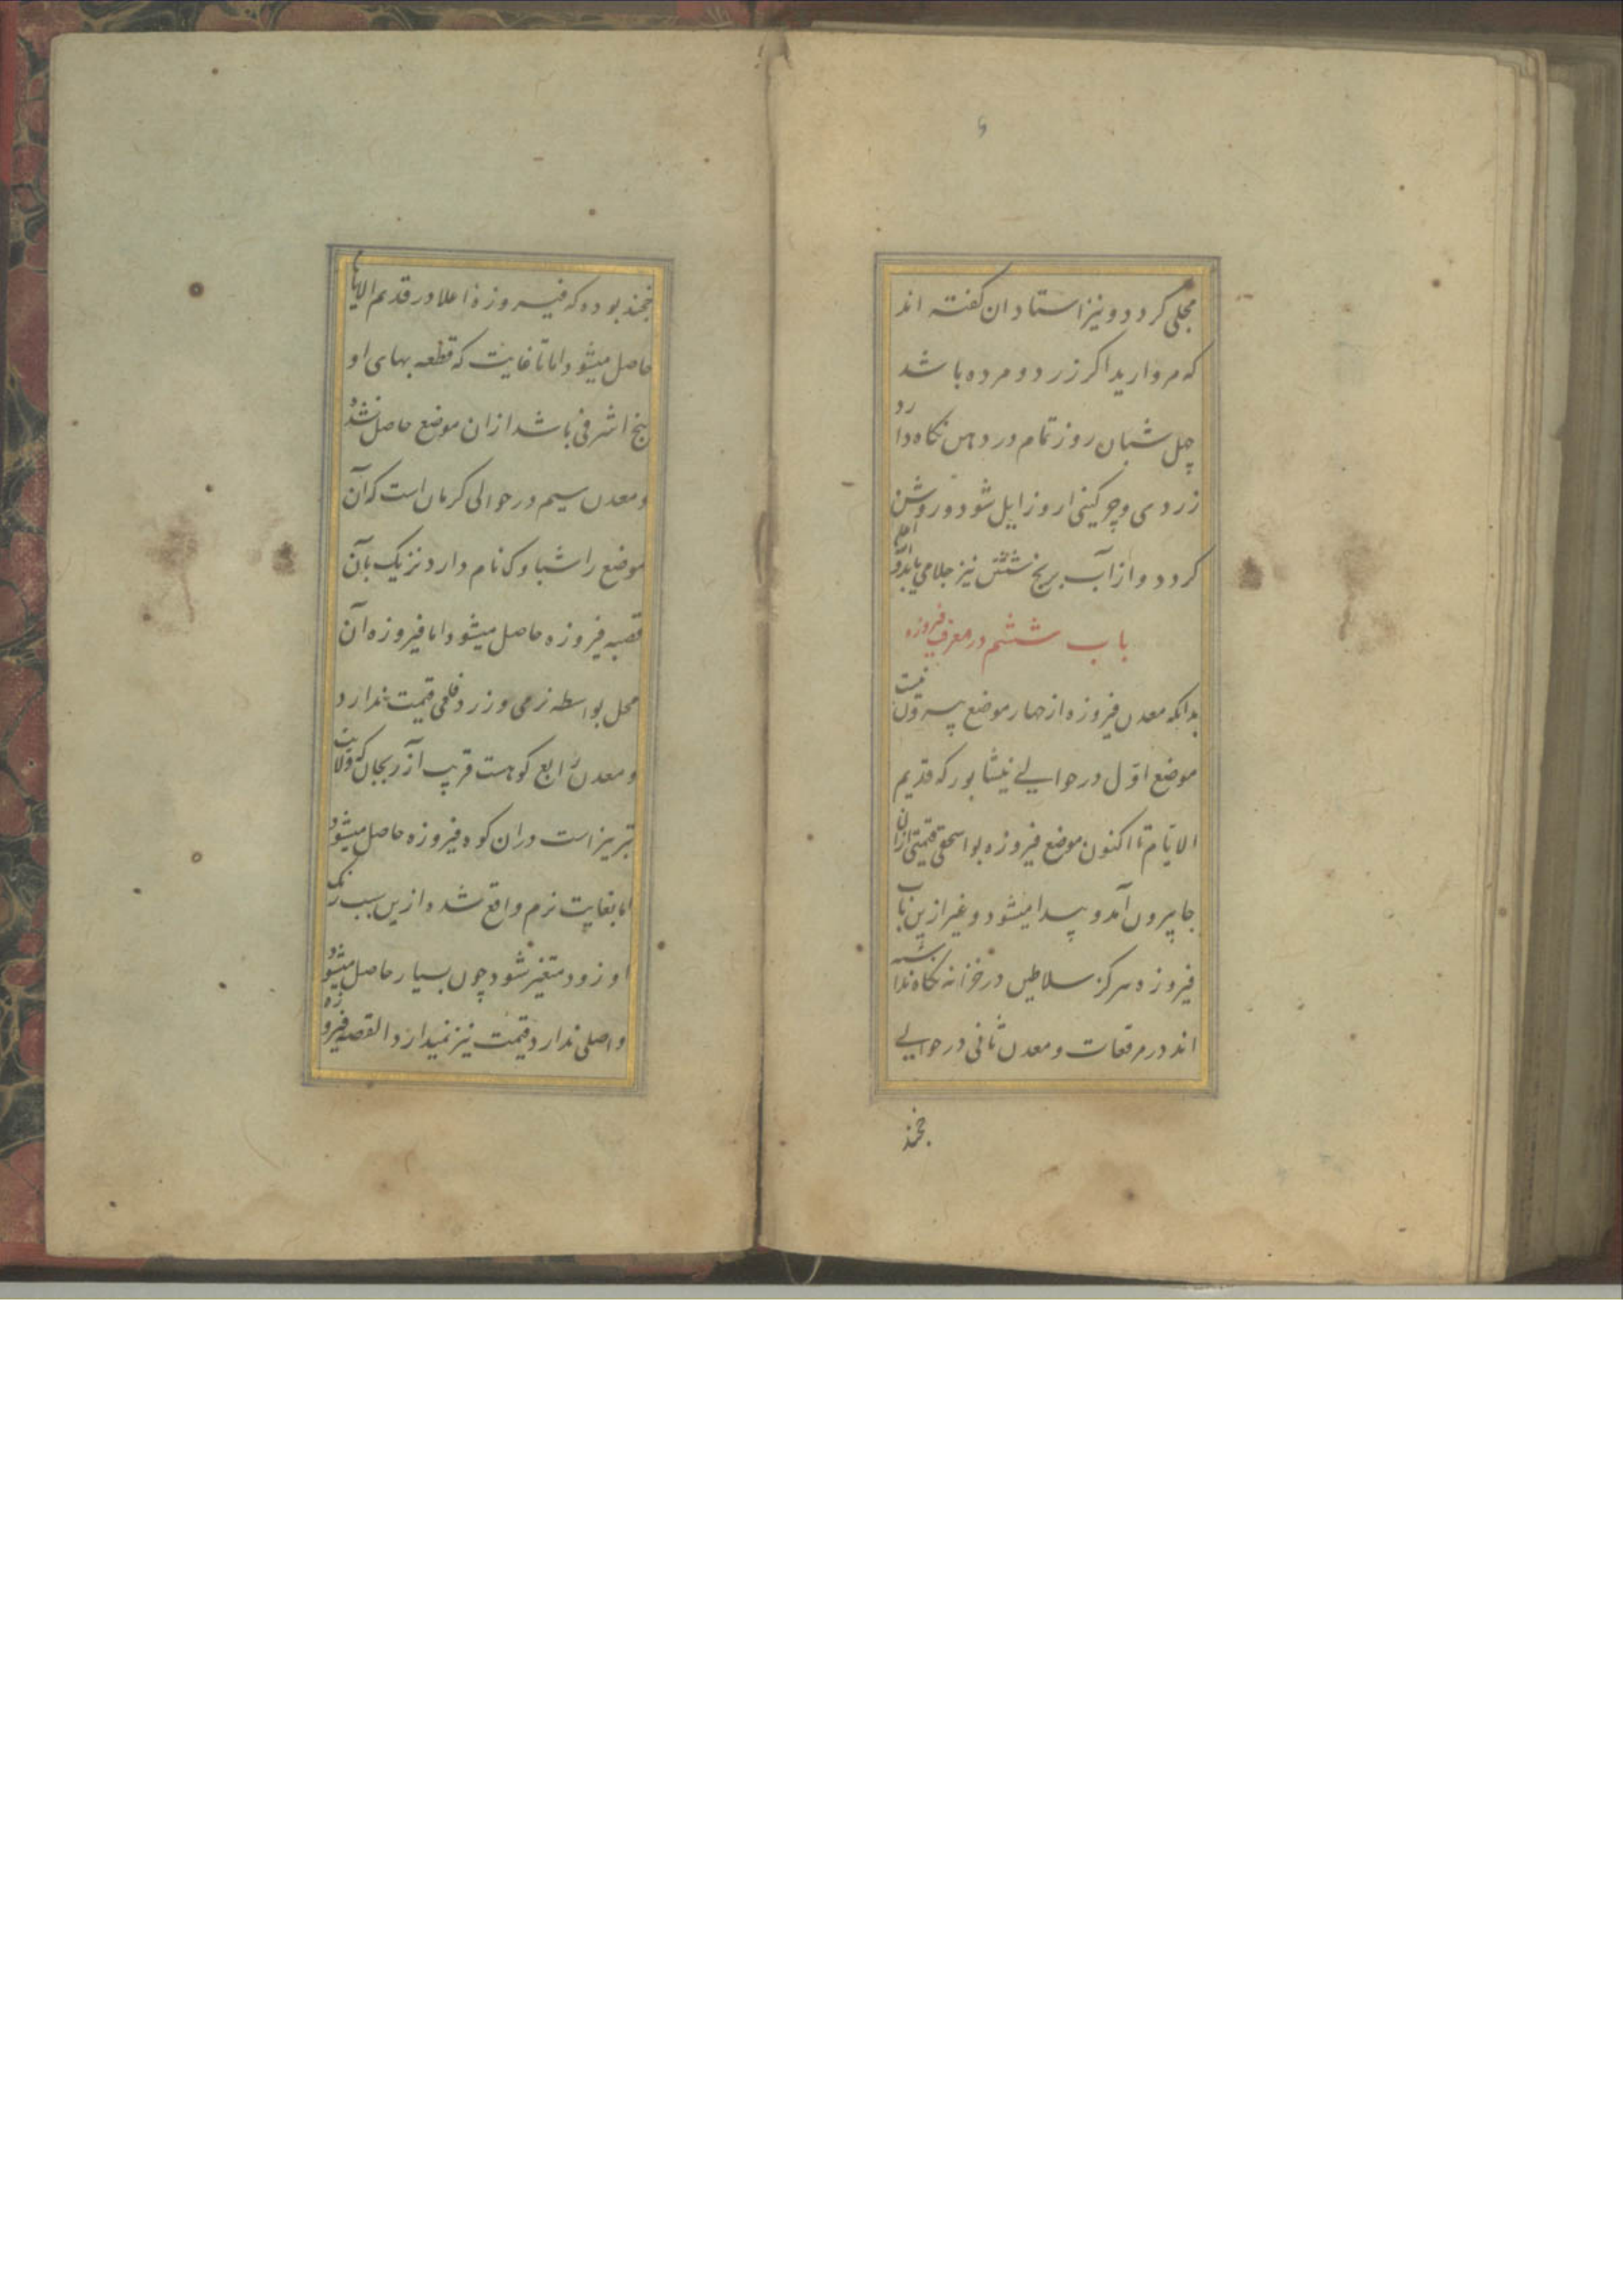 مجلی کردد و نیز استادان کفته اند
که مروارید اکر زرد و مرده باشد
چهل شبان روز تمام در دهن نکاه دارد
زردی و چرکینی از و زایل شود و روشن
کردد و از آب برنج شستن نیز جلا می یابد
باب ششم در معرفت فیروزه
بدانکه معدن فیروزه از چهار موضع بیرون نیست
موضع اوّل در حوالی نیشابور که قدیم
الایّام تا اکنون موضع فیروزه بواسحقی قیمتی ازان
جا بیرون آمد و پیدا میشود و غیر ازین باب
فیروزه هرکز سلاطین در خزانه نکاه نداشته
اند در مرقعات و معدن ثانی در حوالی
خجند
خجند بوده که فیروزه اعلا در قدیم الایام
حاصل میشود اما تا غایت که قطعه بهای او
پنج اشرفی باشد ازان موضع حاصل نشد
و معدن سیم در حوالی کرمان است که آن
موضع را شباوک نام دارد نزیک بآن
قصبه فیروزه حاصل میشود اما فیروزه آن
محل بواسطه نرمی و زرد فلمی قیمت ندارد
و معدن رابع کوهست قریب آزربجان که ولایت
تبریز است دران کوه فیروزه حاصل میشود
اما بغایت نرم واقع شده ازین سبب رنک
او زود متغیر شود چون بسیار حاصل میشود
و اصلی ندارد قیمت نیز نمیدارد القصه فیروزه